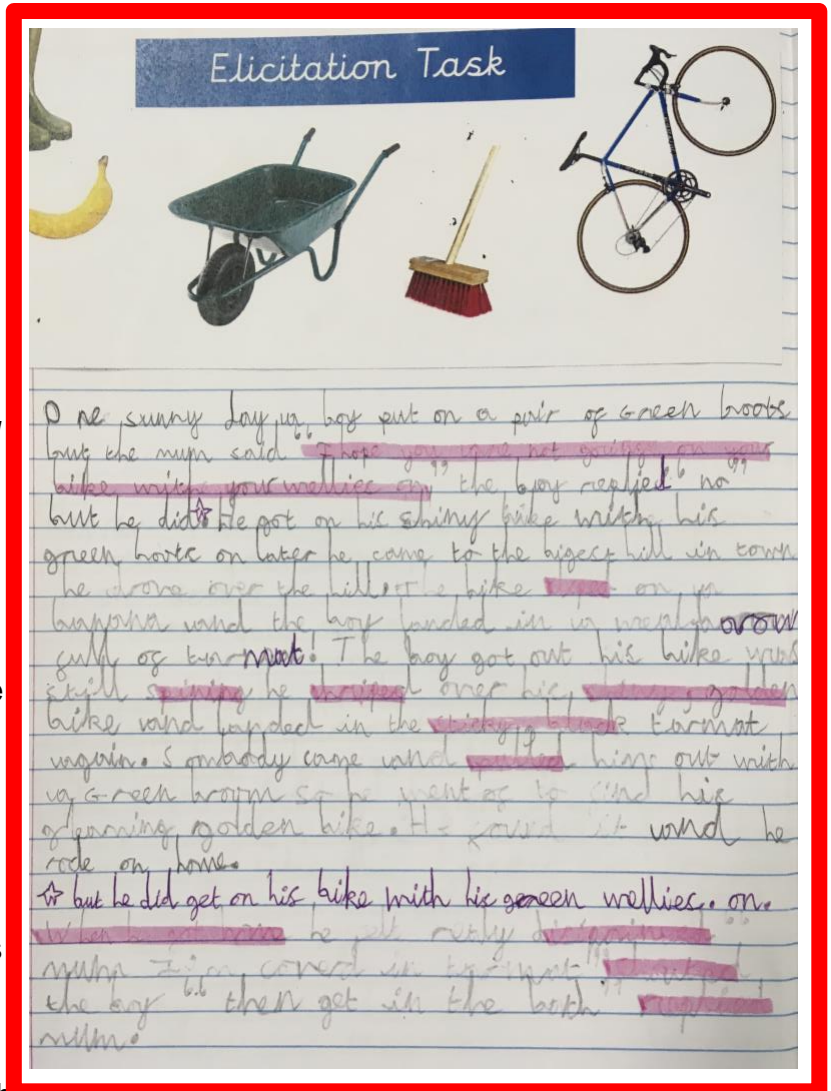 Elicitation Task
One sunny day a boy put on a pair of Green boots
but the mum said “I hope you are not going on your
bike with your wellies on” the boy replied “no”
but he did☆ He got on his shiny bike with his
green boots on later he came to the bigest hill in town
he drove over the hill. The bike on a
banana and the boy landed in a weelbarow
full of tarmat! The boy got out his bike was
still spining he over his golden
bike and landed in the sticky, black tarmat
again. Sombody came and pulled him out with
a Green broom so he went of to find his
gleaming golden bike. He found it and he
rode on home.
☆ but he did get on his bike with his green wellies. on.
When he got home he felt realy “
mum I'm coverd in tarmat”
the boy “then get in the bath” replied
mum.